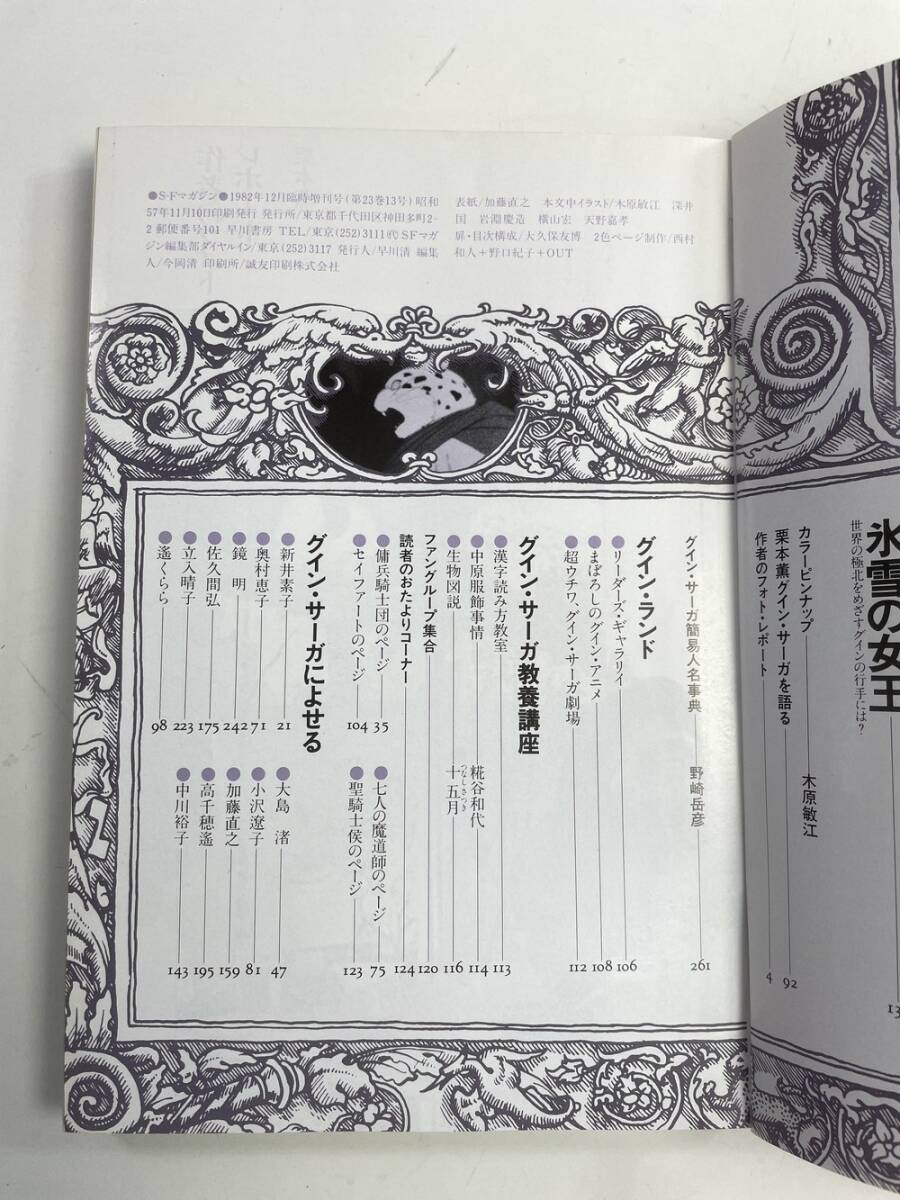 ●S-Fマガジン●1982年12月臨時増刊号(第23巻13号)昭和
57年11月10日印刷発行 発行所/東京都千代田区神田多町2-
2 郵便番号101 早川書房 TEL/東京(252)3111㈹ SFマガ
ジン編集部ダイヤルイン/東京(252)3117 発行人/早川清 編集
人/今岡清 印刷所/誠友印刷株式会社
表紙/加藤直之 本文中イラスト/木原敏江 深井
国 岩淵慶造 横山宏 天野嘉孝
扉・目次構成/大久保友博 2色ページ制作/西村
和人+野口紀子+OUT
氷雪の女王
世界の極北をめざすグインの行手には?
13
カラーピンナップ 木原敏江
栗本薫グイン・サーガを語る 92
作者のフォト・レポート 4
グイン・サーガ簡易人名事典 野崎岳彦 261
グイン・ランド
●リーダーズ・ギャラリイ 106
●まぼろしのグイン・アニメ 108
●超ウチワ、グイン・サーガ劇場 112
グイン・サーガ教養講座
●漢字読み方教室 113
●中原服飾事情 糀谷和代 114
●生物図説 十五月 116
つなしさつき
ファングループ集合 120
読者のおたよりコーナー 124
●傭兵騎士団のページ 35
●七人の魔道師のページ 75
●セイファートのページ 104
●聖騎士侯のページ 123
グイン・サーガによせる
●新井素子 21
●大島 渚 47
●奥村恵子 71
●小沢遼子 81
●鏡 明 242
●加藤直之 159
●佐久間弘 175
●高千穂遙 195
●立入晴子 223
●中川裕子 143
●遙くらら 98